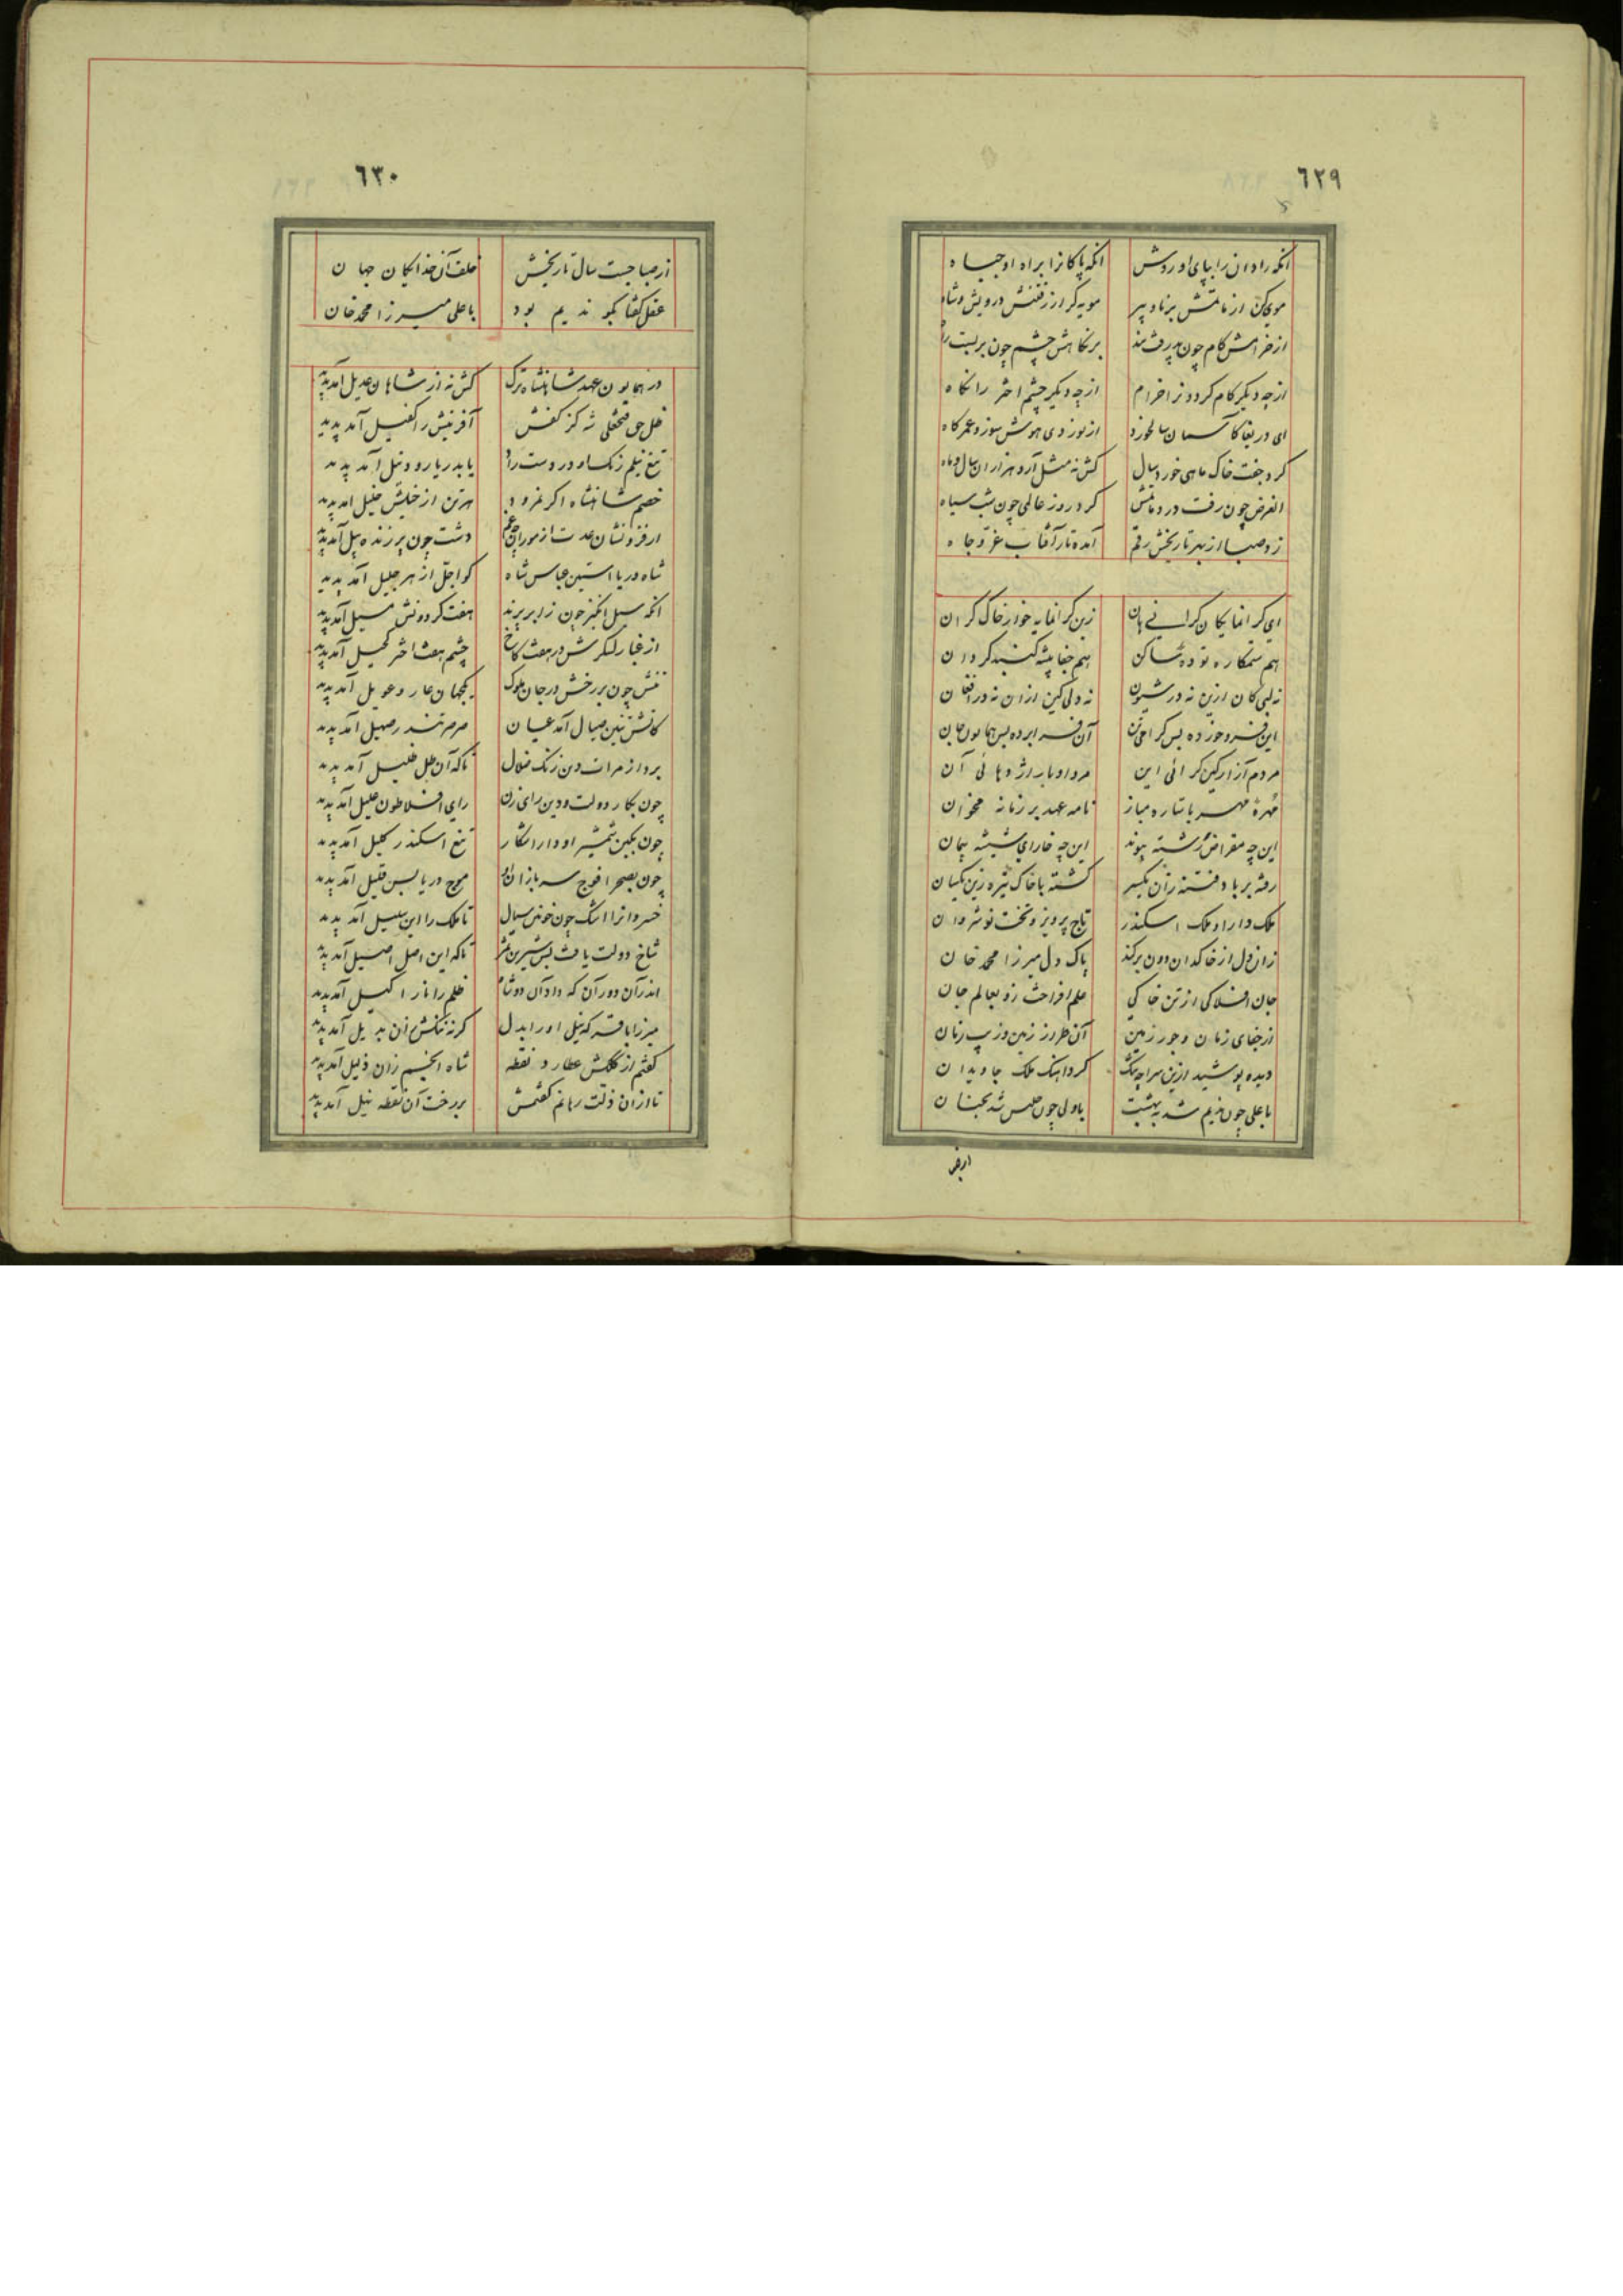 ٦٢٩
انکه رادان را بپای او روش انکه پاکانرا براه او جباه
موی کن از ماتمش برنا و پیر مویه کر از رفتنش درویش و شاه
از خرامش کام چون پذرفت بند بر نکاهش چشم چون بربست راه
از چه دیکر کام کردون را خرام از چه دیکر چشم اختر را نکاه
ای دریغا کاسمان سالخورد از نوردی هوش سوز و عمر کاه
کرد جفت خاک ماهی خورد سال کش نه مثل آرد هزاران سال و ماه
الغرض چون رفت در ماتمش کرد روز عالمی چون شب سیاه
زد صبا از بهر تاریخش رقم آمده تار آفتاب عز و جاه
ای کرانمایکان کرانی هان زین کرانمایه خوار خاک کران
هم ستمکاره توده ساکن هم جفا پیشه کنبد کردان
نه لبی کان ازین نه در شیون نه دلی کین ازان نه در افغان
این فرو خورده بس کرامی تن آن فسرابرده بس همایون جان
مردم آزار کین کرائی این مرد اوبار اژدهائی آن
مهرهٔ مهر با ستاره مباز نامه عهد بر زمانه مخوان
این چه مقراض رشته پیوند این چه خارای شیشه پیمان
رفته بر باد فتنه زان یکسر کشته با خاک تیره زین یکسان
ملک دارا و ملک اسکندر تاج پرویز و تخت نوشروان
زان دل از خاکدان دون برکند پاک دل میرزا محمد خان
جان افلاکی از تن خاکی علم افراخت زد بعالم جان
از جفای زمان و جور زمین آن طراز زمین و زیب زمان
دیده پوشید ازین سراچه تنک کرد آهنک ملک جاویدان
با علی چون ندیم شد به بهشت با ولی چون جلیس شد بجنان
از صبا
٦٣٠
از صبا جست سال تاریخش خلف آن خدایکان جهان
عقل کفتا بکو ندیم بود با علی میرزا محمد خان
در همایون عهد شاهنشاه ترک کش نه از شاهان عدیل آمد پدید
ظل حق فتحعلی شه کز کفش آفرینش را کفیل آمد پدید
تیغ نیلم رنک او در دست راد یا بدریا رود نیل آمد پدید
خصم شاهنشاه اکر نمرود هر تن از خیلش خلیل آمد پدید
ار فزونشان عدت از موران دشت چون پر زنده پیل آمد پدید
شاه دریا استین عباس شاه کو اجل از هر جلیل آمد پدید
انکه سیل انکیز چون ز ابر پرند هفت کردونش مسیل آمد پدید
از غبار لشکرش در هفت کاخ چشم هفت اختر کحیل آمد پدید
تنش چون بر رخش در جان ملوک یکجهان عار و عویل آمد پدید
کاتش تنین صیال آمد عیان صرصر تندر صهیل آمد پدید
برد از مرات دین زنک ضلال تا که آن ظل ظلیل آمد پدید
چون بکار دولت و دین رای زن رای افلاطون علیل آمد پدید
چون بکین شمشیر او دارا شکار تیغ اسکندر کلیل آمد پدید
چون بصحرا فوج سربازان او موج دریا بس قلیل آمد پدید
خسروانرا اشک چون خونین سیال تا ملک را این سلیل آمد پدید
شاخ دولت یافت بس شیرین ثمر تا که این اصل اصیل آمد پدید
اندر آن دوران که داد آن دو شاه ظلم را نار اکیل آمد پدید
کفتم از کلکش عطارد نقطه شاه انجم زان ذلیل آمد پدید
تا ازان ذلت رهانم کفتمش بر رخت آن نقطه نیل آمد پدید